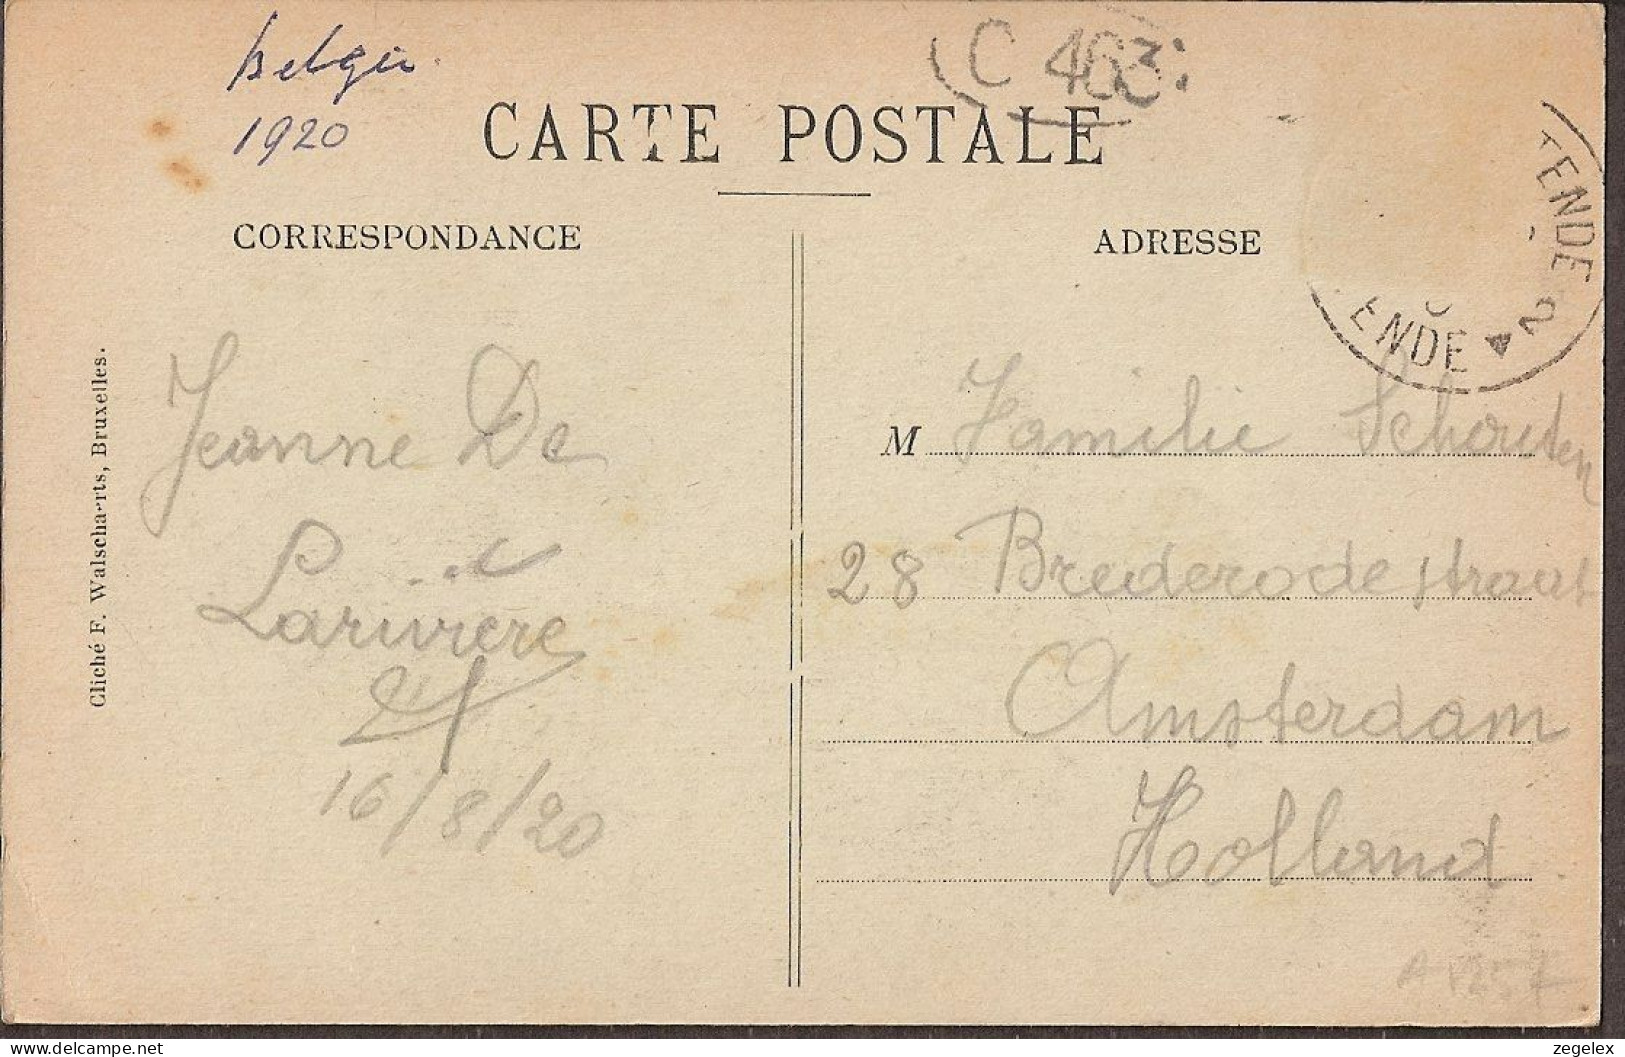 België
1920
C 403
CARTE POSTALE
CORRESPONDANCE
ADRESSE
TENDE
ENDE
2
Cliché F. Walschaerts, Bruxelles.
Jeanne De
Larivière
16/8/20
M Familie Schouten
28 Brederodestraat
Amsterdam
Holland
delcampe.net
zegelex